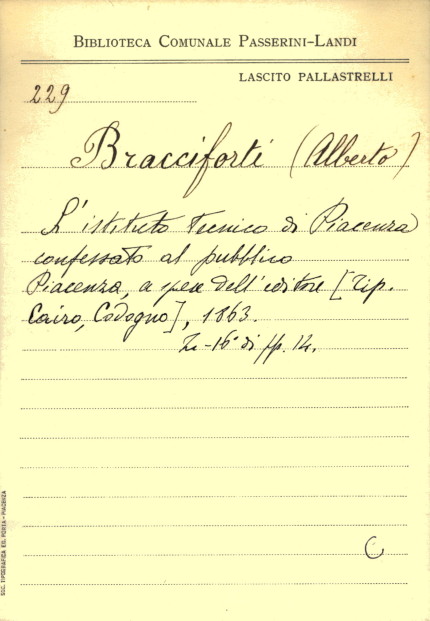 BIBLIOTECA COMUNALE PASSERINI-LANDI
LASCITO PALLASTRELLI
229
Bracciforti (Alberto)
L'istituto tecnico di Piacenza
confessato al pubblico
Piacenza, a spese dell'editore [Tip.
Cairo, Codogno], 1863.
In-16° di pp. 14.
C
SOC. TIPOGRAFICA ED. PORTA - PIACENZA